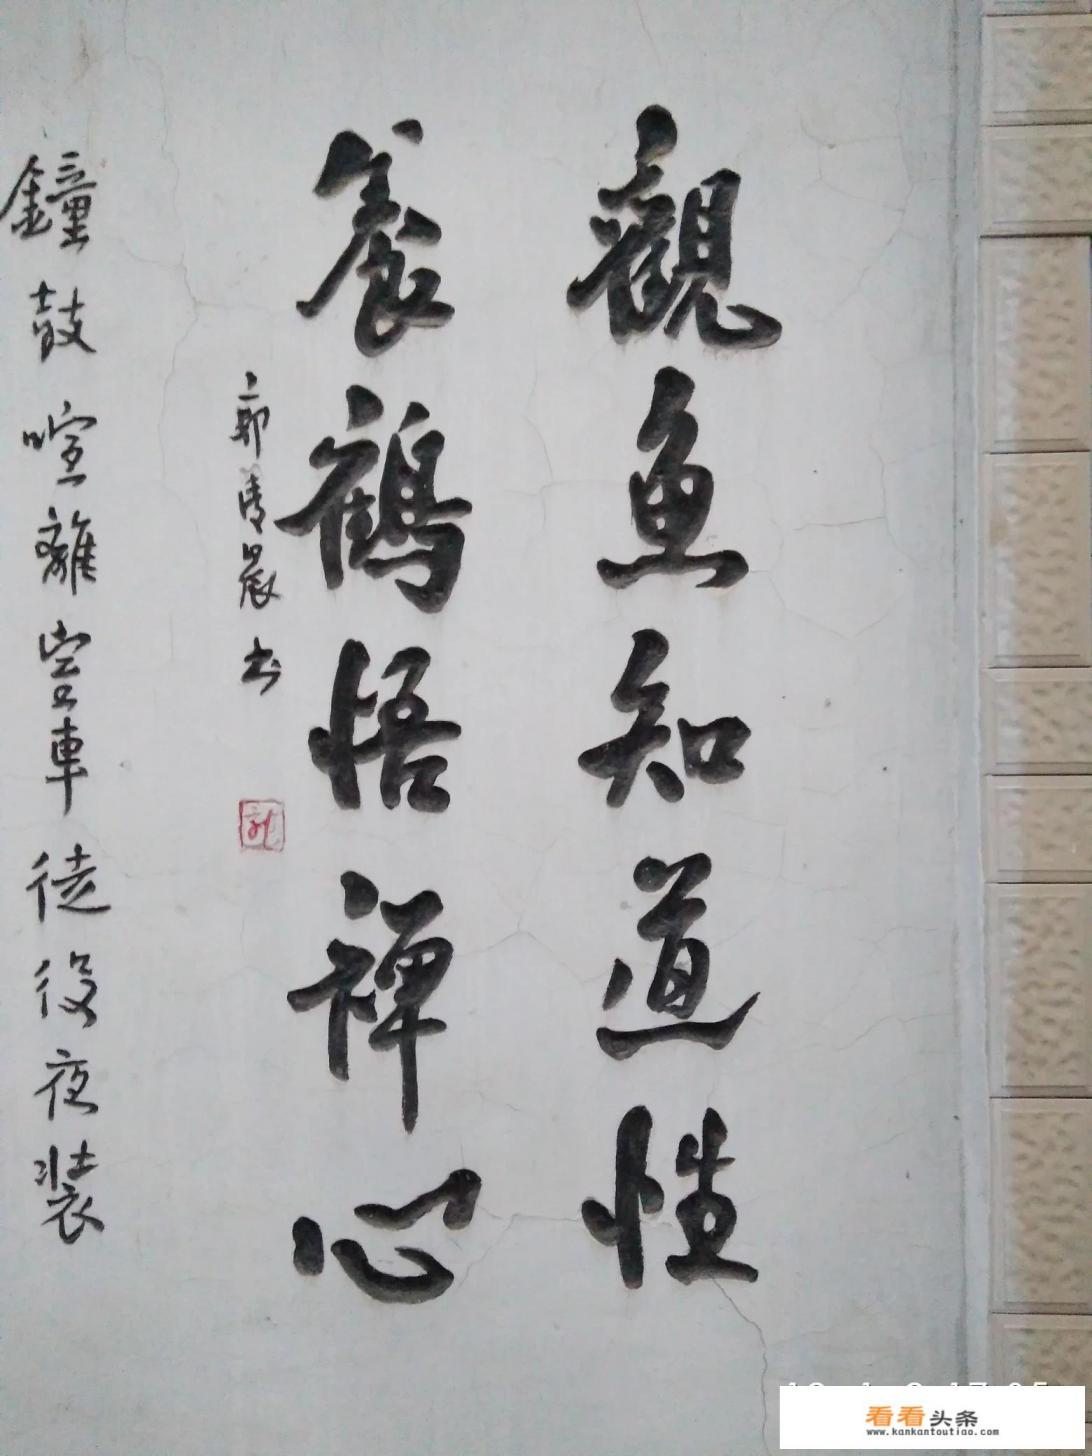 觀魚知道性
養鶴悟禪心
郭 晨 书
鐘鼓喧離 車徒 役夜装
看看头条
www.kankantoutiao.com